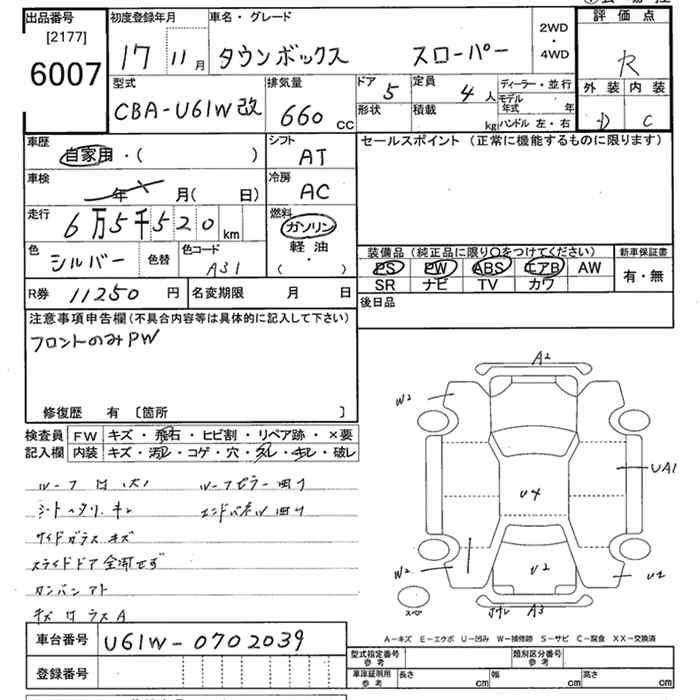 出品番号
[2177]
6007
初度登録年月
17 11月
車名・グレード
タウンボックス スローパー
2WD
・
4WD
評価点
R
外装 内装
D C
型式
CBA-U61W改
排気量
660 CC
ドア 5
形状
定員 4人
積載 kg
ディーラー・並行
モデル年式 年
ハンドル 左・右
車歴
自家用・( )
シフト
AT
セールスポイント (正常に機能するものに限ります)
車検
年 月( 日)
冷房
AC
走行
6万5千520km
燃料
ガソリン
軽油
・
( )
色
シルバー
色替
色コード
A31
装備品 (純正品に限り○をつけてください)
PS PW ABS エアB AW
SR ナビ TV カワ
新車保証書
有・無
R券 11250 円
名変期限 月 日
後日品
注意事項申告欄(不具合内容等は具体的に記入して下さい)
フロントのみPW
修復歴 有 〔箇所 〕
検査員記入欄
FW キズ・飛石・ヒビ割・リペア跡・×要
内装 キズ・汚レ・コゲ・穴・スレ・キレ・破レ
シートヘタリ、キレ
サイドガラスキズ
スライドドア全開せず
A2
W2
UA1
U4
W2
U2
U2
A3
A-キズ E-エクボ U-凹み W-補修跡 S-サビ C-腐食 XX-交換済
車台番号 U61W-0702039
登録番号
型式指定番号 参考
類別区分番号 参考
車庫証明用 参考
長さ cm
幅 cm
高さ cm